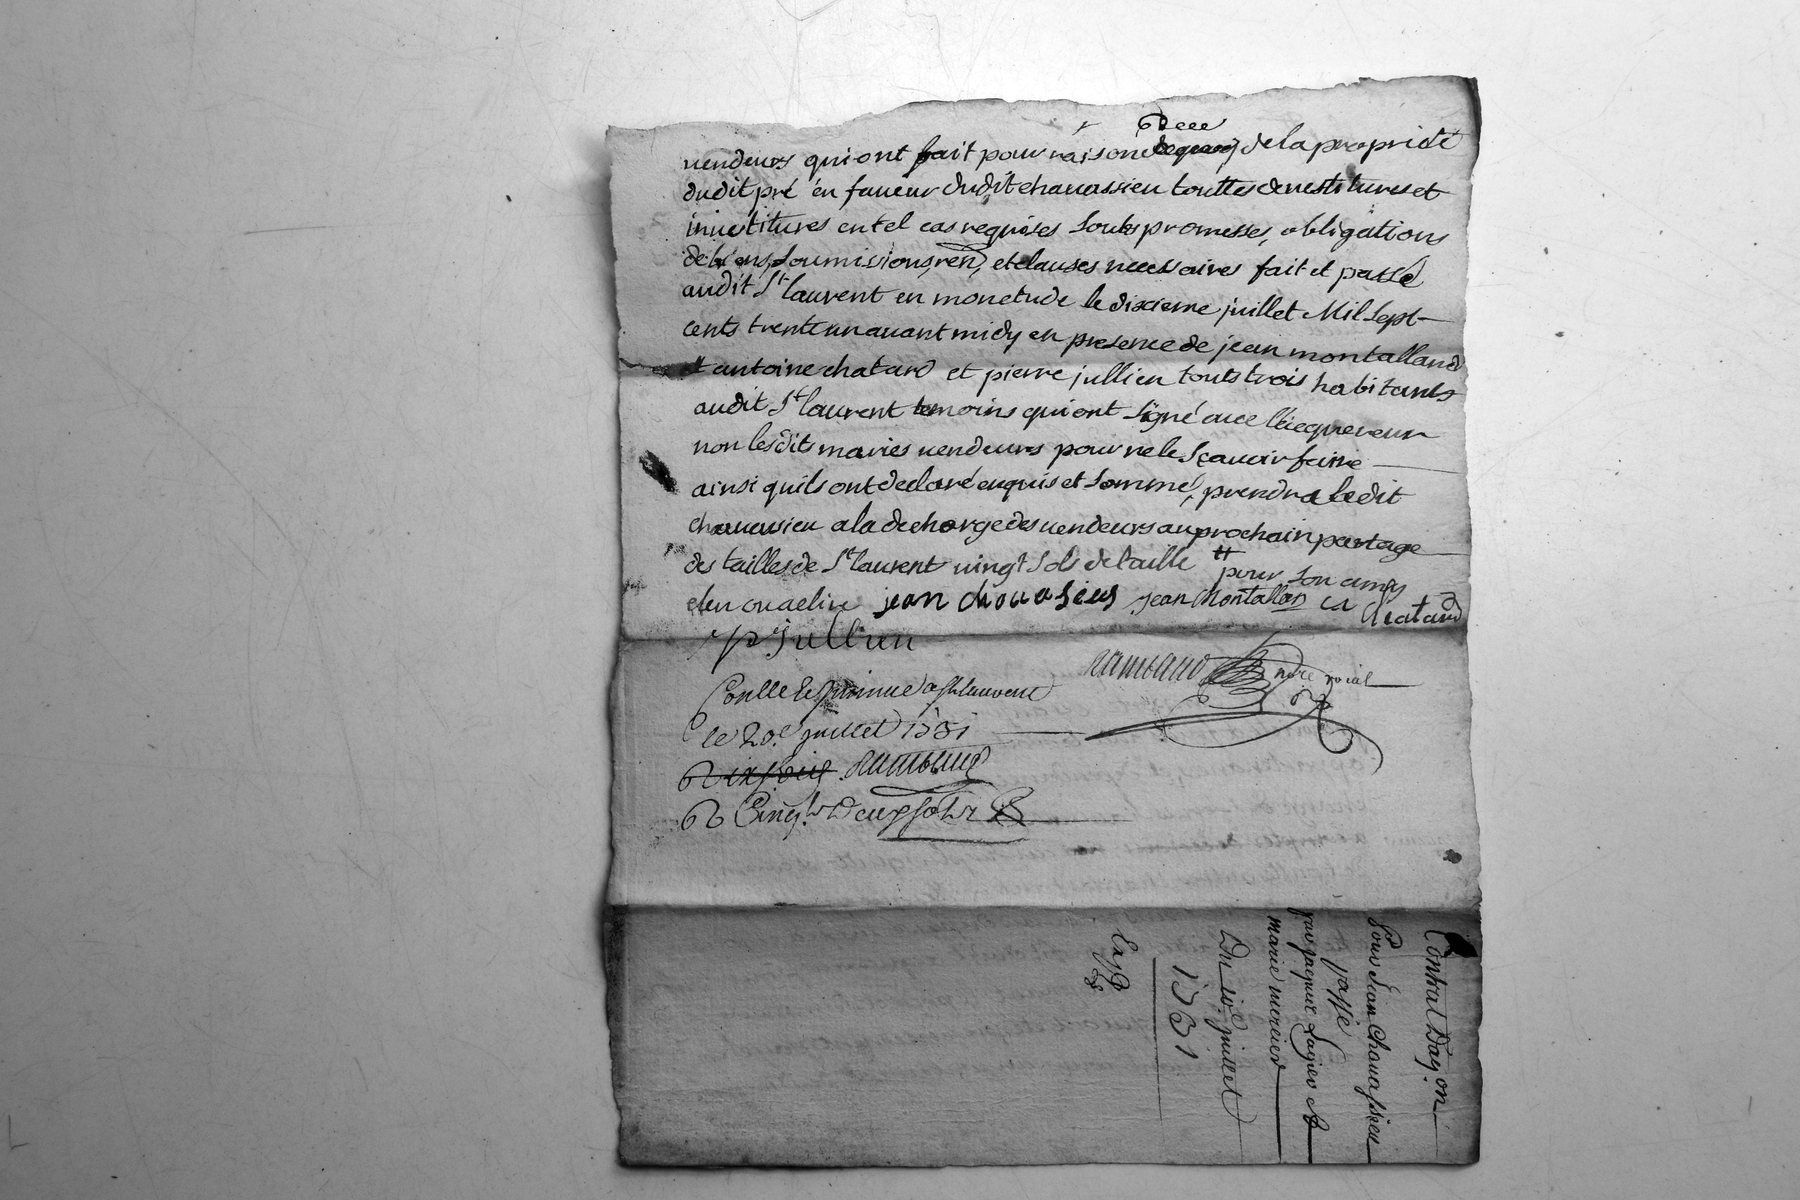 vendeurs qui ont fait pour raison de la proprieté
dudit pré én faveur dudit chauassieu touttes devestitures et
inuetitures en tel cas requises soubs promesses, obligations
de biens, soumissions, ren et clauses necessaires fait et passé
audit St laurent en mon etude le dixieme juillet Mil sept
cents trente un auant midy en presence de jean montalland
antoine chatard et pierre jullien touts trois habitants
audit St laurent temoins qui ont signé auec l'acquereur
non lesdits mariés uendeurs pour ne le sçauoir faire
ainsi quils ont declaré enquis et sommés, prendra ledit
chauassieu a la decharge des uendeurs au prochain partage
des tailles de St laurent uingt sols de taille pour son amas
jean chouasieu jean Montallan chatard
p jullien
Conlle St laurent
le 20e juillet 1731
notre roial
R Cinqte Deux sols
Contrat Daqon
Pour Jean Chauassieu
passé
par jacques Logier et
marie mercier
Du 10e juillet
1731
Expé